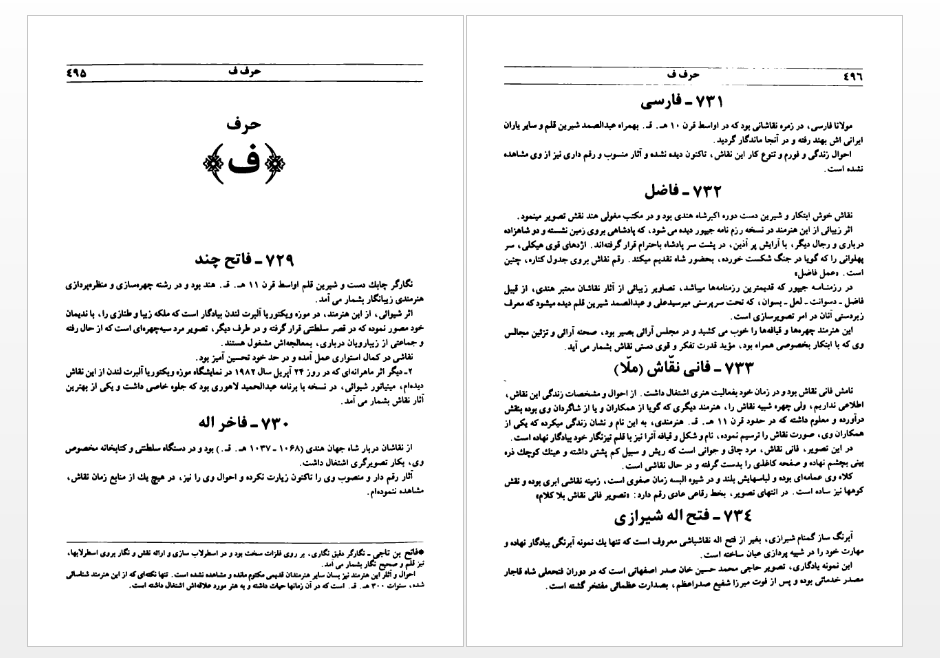 حرف ف
٤٩٥
حرف
ف
٧٢٩ ـ فاتح چند
نگارگر چابك دست و شیرین قلم اواسط قرن ١١ هـ. ق. هند بود و در رشته چهره‌سازی و منظره‌پردازی
هنرمندی زیبانگار بشمار می آمد.
اثر شیوائی، از این هنرمند، در موزه ویکتوریا آلبرت لندن بیادگار است که ملکه زیبا و طنازی را، با ندیمان
خود مصور نموده که در قصر سلطنتی قرار گرفته و در طرف دیگر، تصویر مرد سیه‌چهره‌ای است که از حال رفته
و جماعتی از زیبارویان درباری، بمعالجه‌اش مشغول هستند.
نقاشی در کمال استواری عمل آمده و در حد خود تحسین آمیز بود.
٢ـ دیگر اثر ماهرانه‌ای که در روز ٢٤ آپریل سال ١٩٨٢ در نمایشگاه موزه ویکتوریا آلبرت لندن از این نقاش
دیده‌ام، مینیاتور شیوائی، در نسخه با برنامه عبدالحمید لاهوری بود که جلوه خاصی داشت و یکی از بهترین
آثار نقاش بشمار می آمد.
٧٣٠ ـ فاخر اله
از نقاشان دربار شاه جهان هندی (١٠٦٨ ـ ١٠٣٧ هـ. ق.) بود و در دستگاه سلطنتی و کتابخانه مخصوص
وی، بکار تصویرگری اشتغال داشت.
آثار رقم دار و منصوب وی را تاکنون زیارت نکرده و احوال وی را نیز، در هیچ یك از منابع زمان نقاش،
مشاهده ننموده‌ام.
*فاتح بن ناجی ـ نگارگر دقیق نگاری، بر روی فلزات سخت بود و در اسطرلاب سازی و ارائه نقش و نگار بروی اسطرلابها،
نیز قلم و صحیح نگار بشمار می آمد.
احوال و آثار این هنرمند نیز بسان سایر هنرمندان قدیمی مکتوم مانده و مشاهده نشده است. تنها نکته‌ای که از این هنرمند شناسائی
شده، سنوات ٣٠٠ هـ. ق. است که در آن زمانها حیات داشته و به هنر مورد علاقه‌اش اشتغال داشته است.
حرف ف
٤٩٦
٧٣١ ـ فارسی
مولانا فارسی، در زمره نقاشانی بود که در اواسط قرن ١٠ هـ. ق. بهمراه عبدالصمد شیرین قلم و سایر یاران
ایرانی اش بهند رفته و در آنجا ماندگار گردید.
احوال زندگی و فورم و تنوع کار این نقاش، تاکنون دیده نشده و آثار منسوب و رقم داری نیز از وی مشاهده
نشده است.
٧٣٢ ـ فاضل
نقاش خوش ابتکار و شیرین دست دوره اکبرشاه هندی بود و در مکتب مغولی هند نقش تصویر مینمود.
اثر زیبائی از این هنرمند در نسخه رزم نامه جیپور دیده می شود، که پادشاهی بروی زمین نشسته و دو شاهزاده
درباری و رجال دیگر، با آرایش پر آذین، در پشت سر پادشاه باحترام قرار گرفته‌اند. اژدهای قوی هیکلی، سر
پهلوانی را که گویا در جنگ شکست خورده، بحضور شاه تقدیم میکند. رقم نقاش بروی جدول کناره، چنین
است. «عمل فاضل»
در رزمنامه جیپور که قدیمترین رزمنامه‌ها میباشد، تصاویر زیبائی از آثار نقاشان معتبر هندی، از قبیل
فاضل ـ دسوانت ـ لعل ـ بسوان، که تحت سرپرستی میرسیدعلی و عبدالصمد شیرین قلم دیده میشود که معرف
زبردستی آنان در امر تصویرسازی است.
این هنرمند چهره‌ها و قیافه‌ها را خوب می کشید و در مجلس آرائی بصیر بود، صحنه آرائی و تزئین مجالس
وی که با ابتکار بخصوصی همراه بود، مؤید قدرت تفکر و قوی دستی نقاش بشمار می آید.
٧٣٣ ـ فانی نقّاش (ملّا)
نامش فانی نقاش بود و در زمان خود بفعالیت هنری اشتغال داشت. از احوال و مشخصات زندگی این نقاش،
اطلاعی نداریم، ولی چهره شبیه نقاش را، هنرمند دیگری که گویا از همکاران و یا از شاگردان وی بوده بنقش
درآورده و معلوم داشته که در حدود قرن ١١ هـ. ق. هنرمندی، به این نام و نشان زندگی میکرده که یکی از
همکاران وی، صورت نقاش را ترسیم نموده، نام و شکل و قیافه آنرا نیز با قلم تیزنگار خود بیادگار نهاده است.
در این تصویر، فانی نقاش، مرد چاق و جوانی است که ریش و سبیل کم پشتی داشته و عینك کوچك ذره
بینی بچشم نهاده و صفحه کاغذی را بدست گرفته و در حال نقاشی است.
کلاه وی عمامه‌ای بوده و لباسهایش بلند و در شیوه البسه زمان صفوی است، زمینه نقاشی ابری بوده و نقش
کوهها نیز ساده است. در انتهای تصویر، بخط رقاعی عادی رقم دارد: «تصویر فانی نقاش بلا کلام»
٧٣٤ ـ فتح اله شیرازی
آبرنگ ساز گمنام شیرازی، بغیر از فتح اله نقاشباشی معروف است که تنها یك نمونه آبرنگی بیادگار نهاده و
مهارت خود را در شبیه پردازی عیان ساخته است.
این نمونه یادگاری، تصویر حاجی محمد حسین خان صدر اصفهانی است که در دوران فتحعلی شاه قاجار
مصدر خدماتی بوده و پس از فوت میرزا شفیع صدراعظم، بصدارت عظمائی مفتخر گشته است.